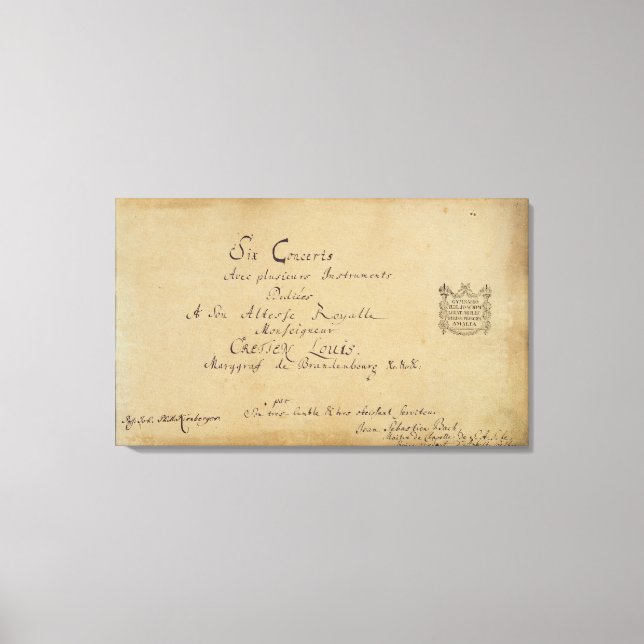 Six Concerts
Avec plusieurs Instruments
Dediées
A Son Altesse Royalle
Monseigneur
CRETIEN Louis.
Marggraf de Brandenbourg &c. &c. &c.
par
Son tres humble & tres obeissant serviteur
Jean Sebastien Bach,
Maitre de Chapelle de S. A. S. le
Poss. Joh. Phil. Kirnberger.
GYMNASIO
REG. IOACHIM
LEGAT. SEREN.
PRINCIPIS
AMALIA